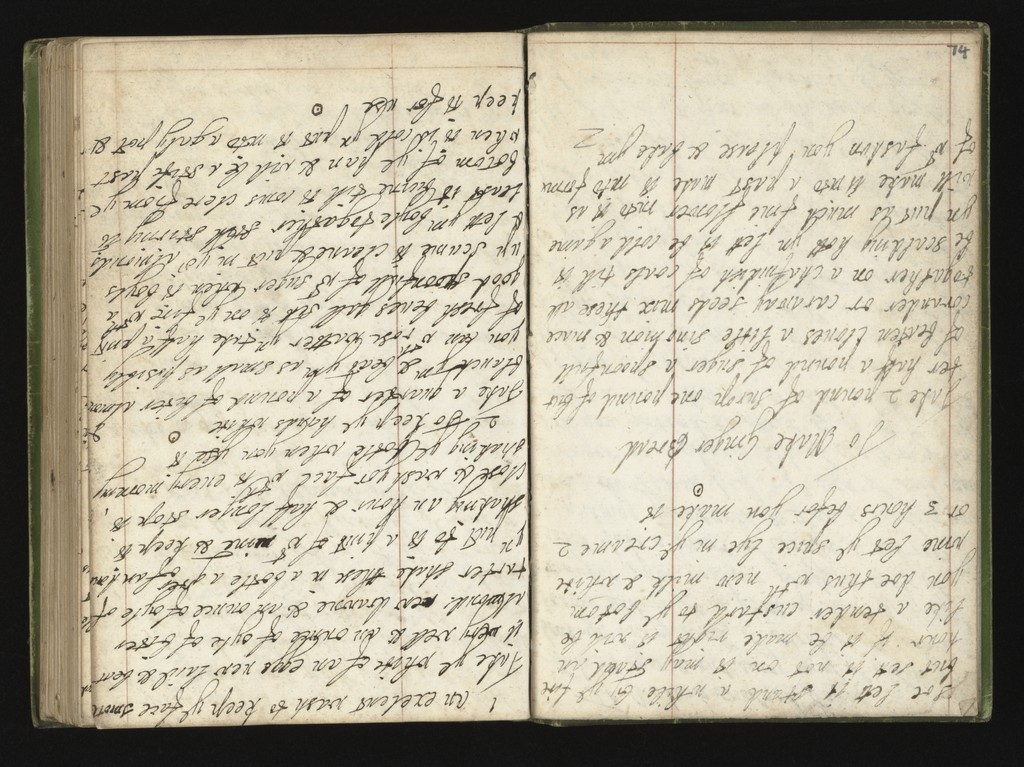 soe Let it stand a while by ye fire
but let it not on it may stand an
hour if it be made right it will be
like a tender custard to ye botom
you doe thus wth new milk & a litle
wine Let ye spice Lye in ye creame 2
or 3 hours befor you make it
To Make Ginger Bread
Take 2 pound of surop one pound of but
ter half a pound of suger a spoonfull
of beaten cloves a little sinomon & mace
coriander or caraway seeds mix these all
togather on a chafindish of coals till it
be scalding hott yn Let it be cold againe
yn put as much fine flower into it as
will make it into a past make it into forme
of wt fashon you please & bake ym
2
74
1 An exelent wash to keep ye face smooth
Take ye white of an egge new laid & beat
it very well & an ounce of oyle of biter
almonds new drawne & an ounce of oyle of
tarter shake these in a botle
yn put to it a pint of wt wine & keep it
shaking an hour & half longer stop it
close & wash yor face wth it every morning
shaking ye botle when you use it
2 To keep ye hands white
Take a quarter of a pound of biter almon
blanch ym & beat ym as small as posibly
you can wth rose watter yn take half a pint
of fresh beves gall set it on ye fire wth a
good spoonfull of wt suger when it boyls
up scume it cleane put in yor almonds
& Lett ym boyle togather still stirring it
least it burne till it coms clere from ye
botom of ye pan & will be a stif past
when it is cold yn put it into a gally pot &
keep it for use